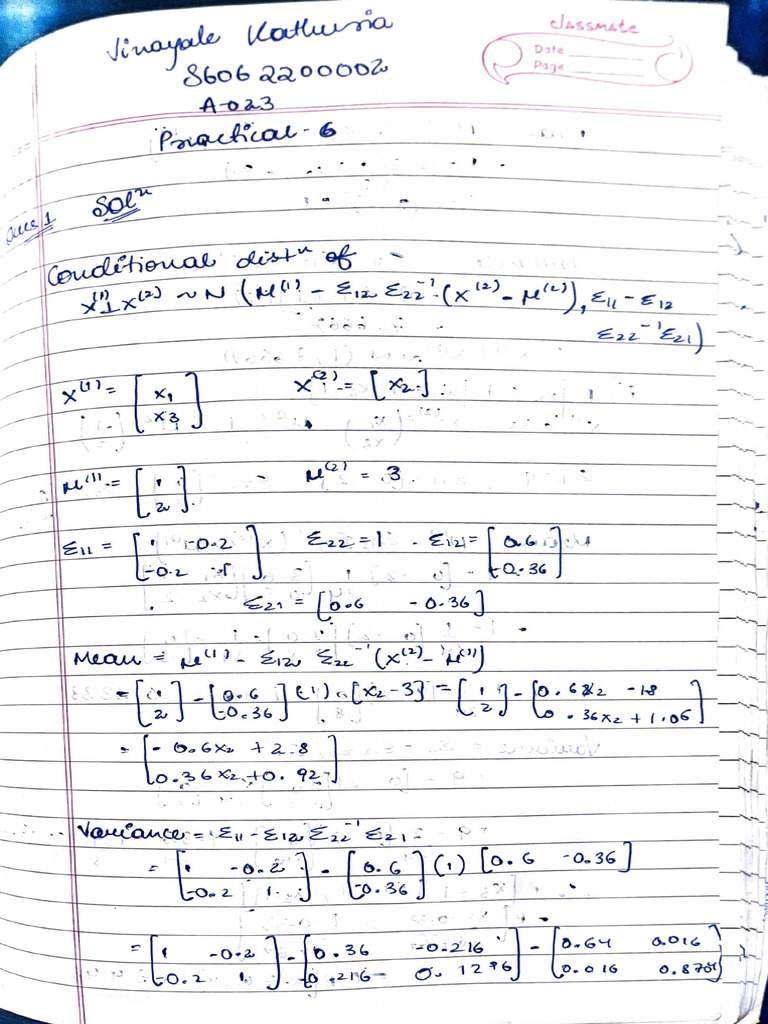 Vinayak Kathuria
CLASSMATE
Date
Page
86062200002
A-023
Practical-6
Ques 1 Solⁿ
Conditional distⁿ of -
X⁽¹⁾⊥X⁽²⁾ ~ N (μ⁽¹⁾ - Σ12 Σ22⁻¹ (X⁽²⁾ - μ⁽²⁾), Σ11 - Σ12
Σ22⁻¹ Σ21)
X⁽¹⁾ = [x1 ; x3] X⁽²⁾ = [x2]
μ⁽¹⁾ = [1 ; 2] - μ⁽²⁾ = 3
Σ11 = [1 -0.2 ; -0.2 1] Σ22 = 1 Σ12 = [0.6 ; -0.36]
Σ21 = [0.6 -0.36]
Mean = μ⁽¹⁾ - Σ12 Σ22⁻¹ (X⁽²⁾ - μ⁽¹⁾)
= [1 ; 2] - [0.6 ; -0.36] (1) [x2 - 3] = [1 ; 2] - [0.6x2 - 18 ; 0.36x2 + 1.08]
= [-0.6x2 + 2.8 ; 0.36x2 + 0.92]
Variance = Σ11 - Σ12 Σ22⁻¹ Σ21
= [1 -0.2 ; -0.2 1] - [0.6 ; -0.36] (1) [0.6 -0.36]
= [1 -0.2 ; -0.2 1] - [0.36 -0.216 ; -0.216 0.1296] - [0.64 0.016 ; 0.016 0.8704]